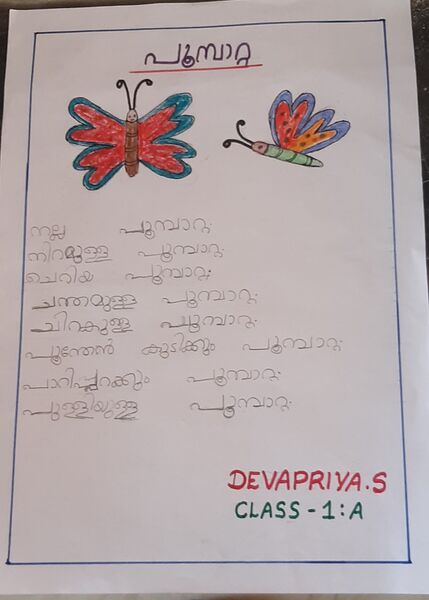 പൂമ്പാറ്റ
നല്ല പൂമ്പാറ്റ.
നിറമുള്ള പൂമ്പാറ്റ.
ചെറിയ പൂമ്പാറ്റ.
ചന്തമുള്ള പൂമ്പാറ്റ.
ചിറകുള്ള പൂമ്പാറ്റ.
പൂന്തേൻ കുടിക്കും പൂമ്പാറ്റ.
പാറിപ്പറക്കും പൂമ്പാറ്റ.
പുള്ളിയുള്ള പൂമ്പാറ്റ.
DEVAPRIYA.S
CLASS - 1:A